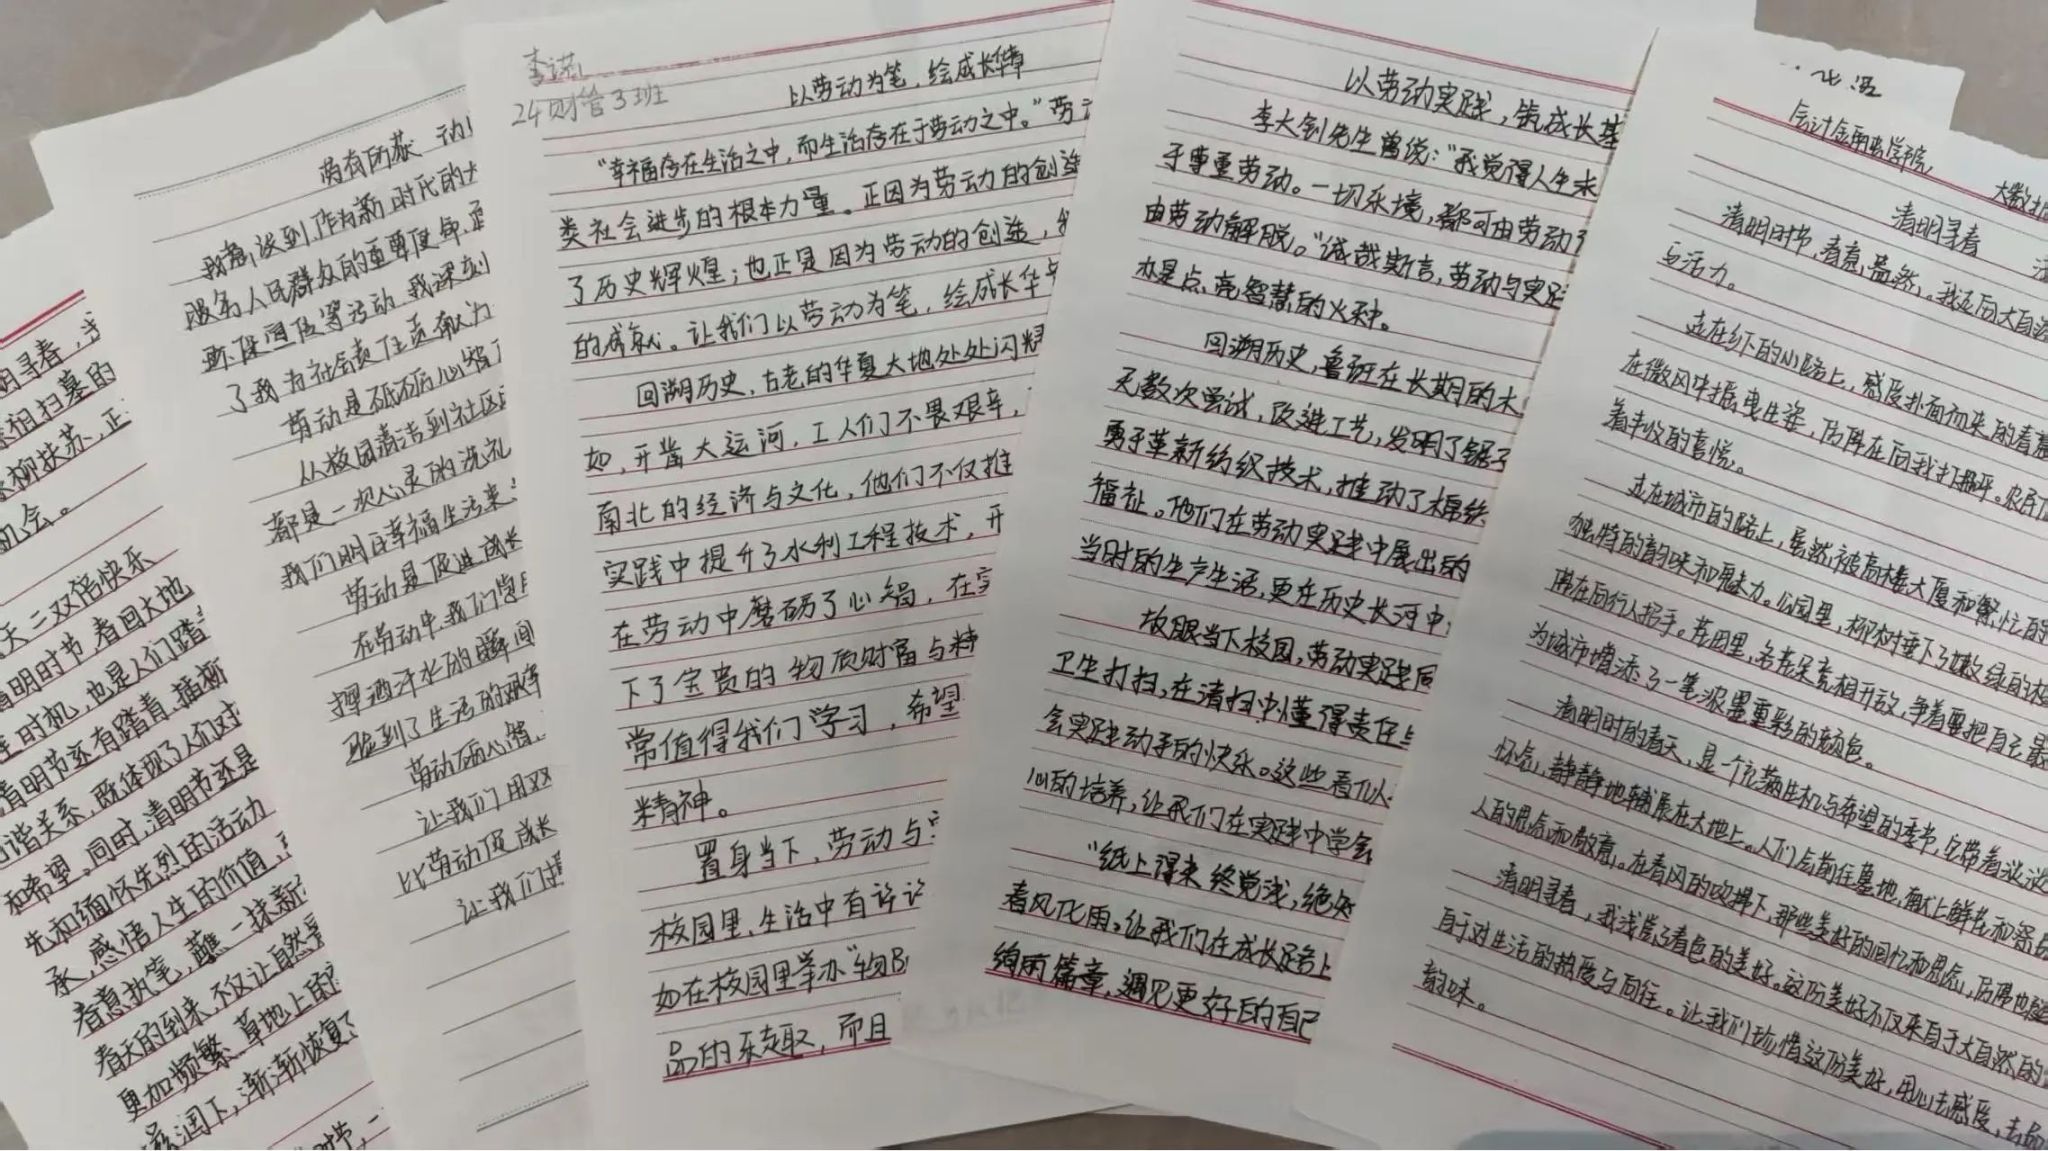 明寻春,
亲相扫墓的
柳扶苏,正
机会。
天二双倍快乐
清明时节,春回大地
生时机,也是人们踏
清明节还有踏青、插柳
谐关系,既体现了人们对
和希望。同时,清明节还是
先和缅怀先烈的活动
承,感悟人生的价值,
春意执笔,蘸一抹新
春天的到来,不仅让自然景
更加频繁。草地上的
滋润下,渐渐恢复了
时节,一
劳有所获 动
谈到,作为新时代的大
服务人民群众的重要使命,
环保宣传等活动,我深刻
了我为社会责任贡献力
劳动是砥砺心智
从校园清洁到社区
都是一次心灵的洗礼
我们明白幸福生活来
劳动是促进成长
在劳动中,我们学
挥洒汗水的瞬间
验到了生活的艰辛
劳动砺心智,
让我们用双
以劳动促成长
让我们携
李诺
24财管3班
以劳动为笔,绘成长华章
“幸福存在生活之中,而生活存在于劳动之中。”劳动
类社会进步的根本力量。正因为劳动力的创造
了历史辉煌;也正是因为劳动的创造,我
的成就。让我们以劳动为笔,绘成长华章
回溯历史,古老的华夏大地处处闪耀
如,开凿大运河,工人们不畏艰辛,
南北的经济与文化,他们不仅推
实践中提升了水利工程技术,开
在劳动中磨砺了心智,在实
下了宝贵的物质财富与精
常值得我们学习,希望
精神。
置身当下,劳动与实
校园里,生活中有许许
如在校园里举办“物
品的乐趣取,而且
以劳动实践,筑成长基
李大钊先生曾说:“我觉得人生求
于尊重劳动。一切乐境,都可由劳动
由劳动解脱。”诚哉斯言,劳动与实践
亦是点亮智慧的火种。
回溯历史,鲁班在长期的木
无数次尝试,改进工艺,发明了锯子
勇于革新纺织技术,推动了棉纺
福祉。他们在劳动实践中展出的
当时的生产生活,更在历史长河中
放眼当下校园,劳动实践同
卫生打扫,在清扫中懂得责任与
会实践动手的快乐。这些看似
心的培养,让我们在实践中学会
“纸上得来终觉浅,绝知
春风化雨。让我们在成长路上
绚丽篇章,遇见更好的自己
会计金融学院
大数据
清明寻春
清明时节,春意盎然。我走向大自然
与活力。
走在乡下的小路上,感受扑面而来的春意
在微风中摇曳生姿,仿佛在向我打招呼。农
着丰收的喜悦。
走在城市的路上,虽然被高楼大厦和繁忙的
独特的韵味和魅力。公园里,柳树垂下了嫩绿的枝
佛在向行人招手。花园里,各花朵竞相开放,争着要把自己最
为城市增添了一笔浓墨重彩的颜色。
清明时的春天,是一个充满生机与希望的季节,它带着淡淡
怀念,静静地铺展在大地上。人们会前往墓地,献上鲜花和祭品
人的思念和敬意。在春风的吹拂下,那些美好的回忆和思念,仿佛也随
清明寻春,我浅尝了春色的美好。这份美好不仅来自于大自然的
自于对生活的热爱与向往。让我们珍惜这份美好,用心去感受,去品
韵味。